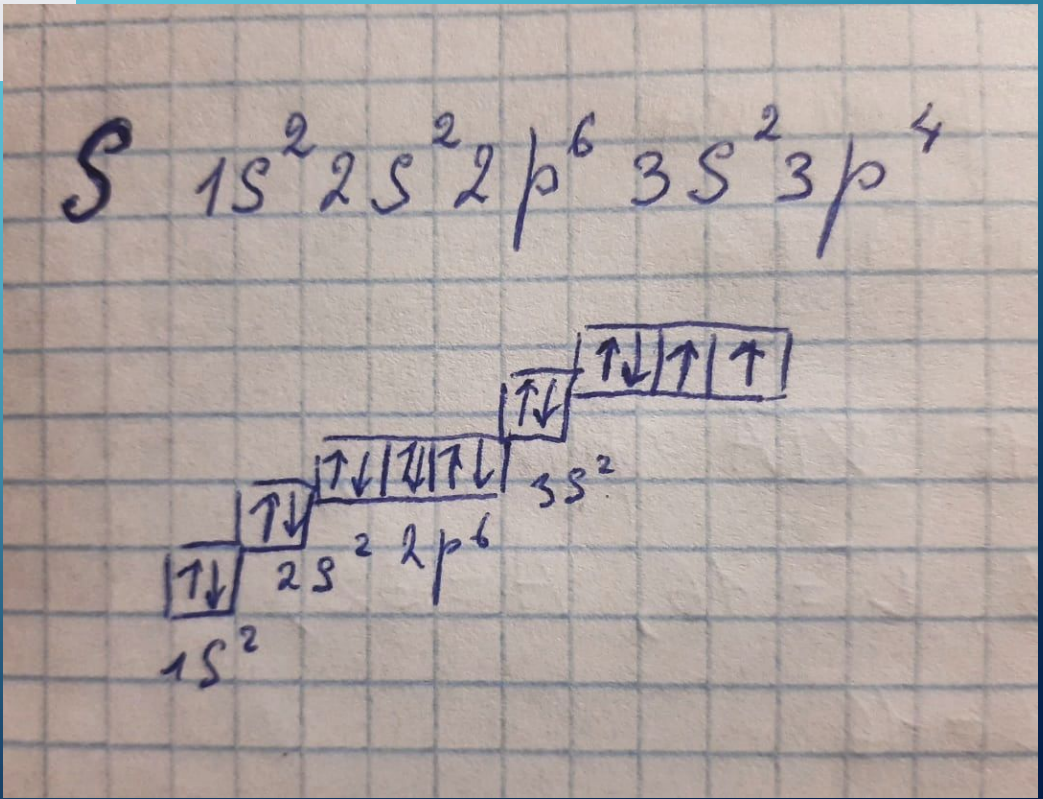 S 1s²2s²2p⁶3s²3p⁴
↑↓ ↑ ↑
↑↓
3s²
↑↓ ↑↓ ↑↓
2p⁶
↑↓
2s²
↑↓
1s²